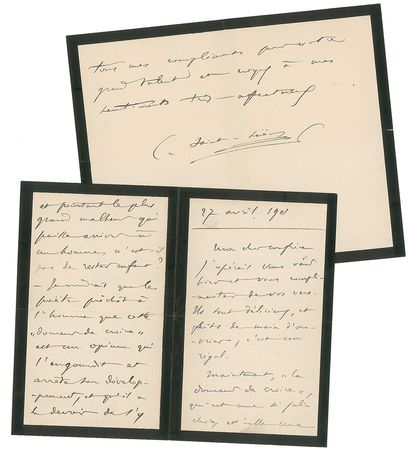 27 avril 1901
Mon cher confrère
j'espérais vous voir
hier et vous compli-
menter de vos vers.
Ils sont délicieux, et
faits de main d'ou-
vrier, c'est un
régal.
Maintenant, "la
douceur de croire",
qui est une si jolie
chose, est-elle une
et pourtant le plus
grand malheur qui
puisse arriver à
un homme n'est-il
pas de rester enfant?
— Je voudrais que le
poète prêchât à
l'homme que cette
"douceur de croire"
est un opium qui
l'engourdit et
arrête son dévelop-
pement, et qu'il a
le devoir de s'y
tous mes compliments pour votre
grand talent et croyez à mes
sentiments très affectueux
C. Saint-Saëns